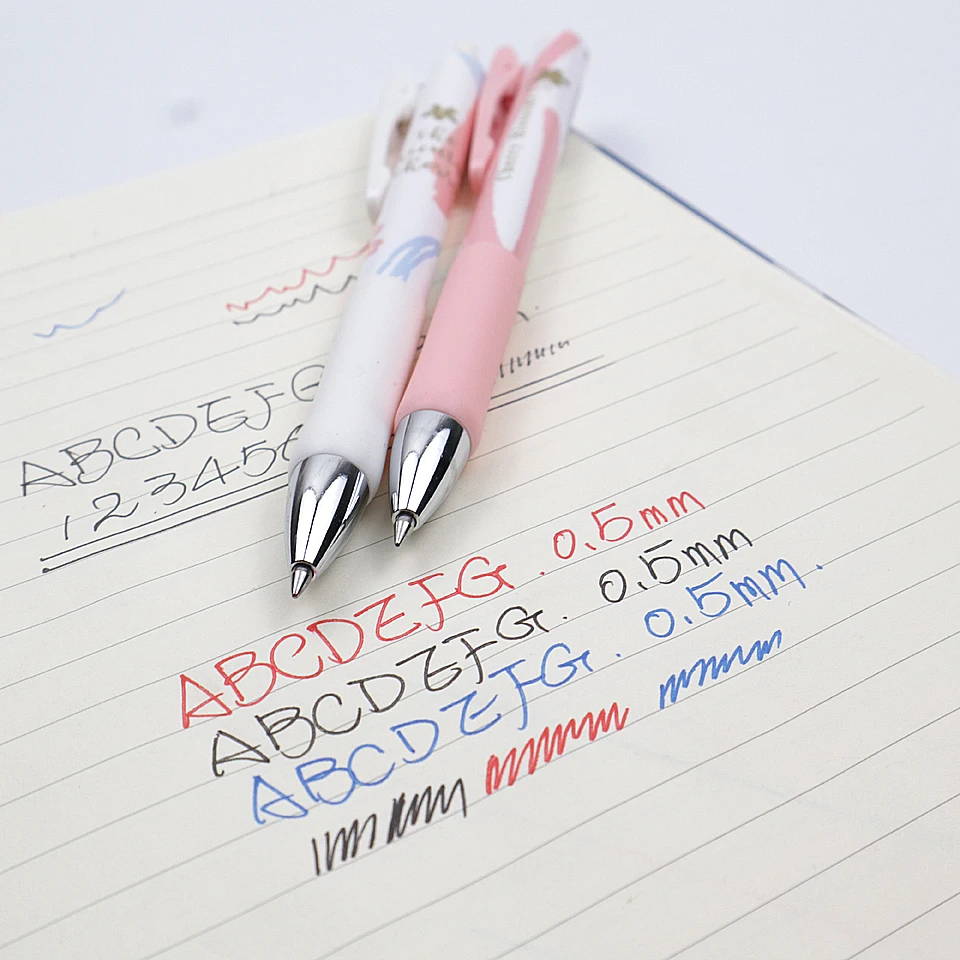 ABCDEFG
123456
ABCDEFG. 0.5mm
ABCDEFG. 0.5mm
ABCDEFG. 0.5mm.